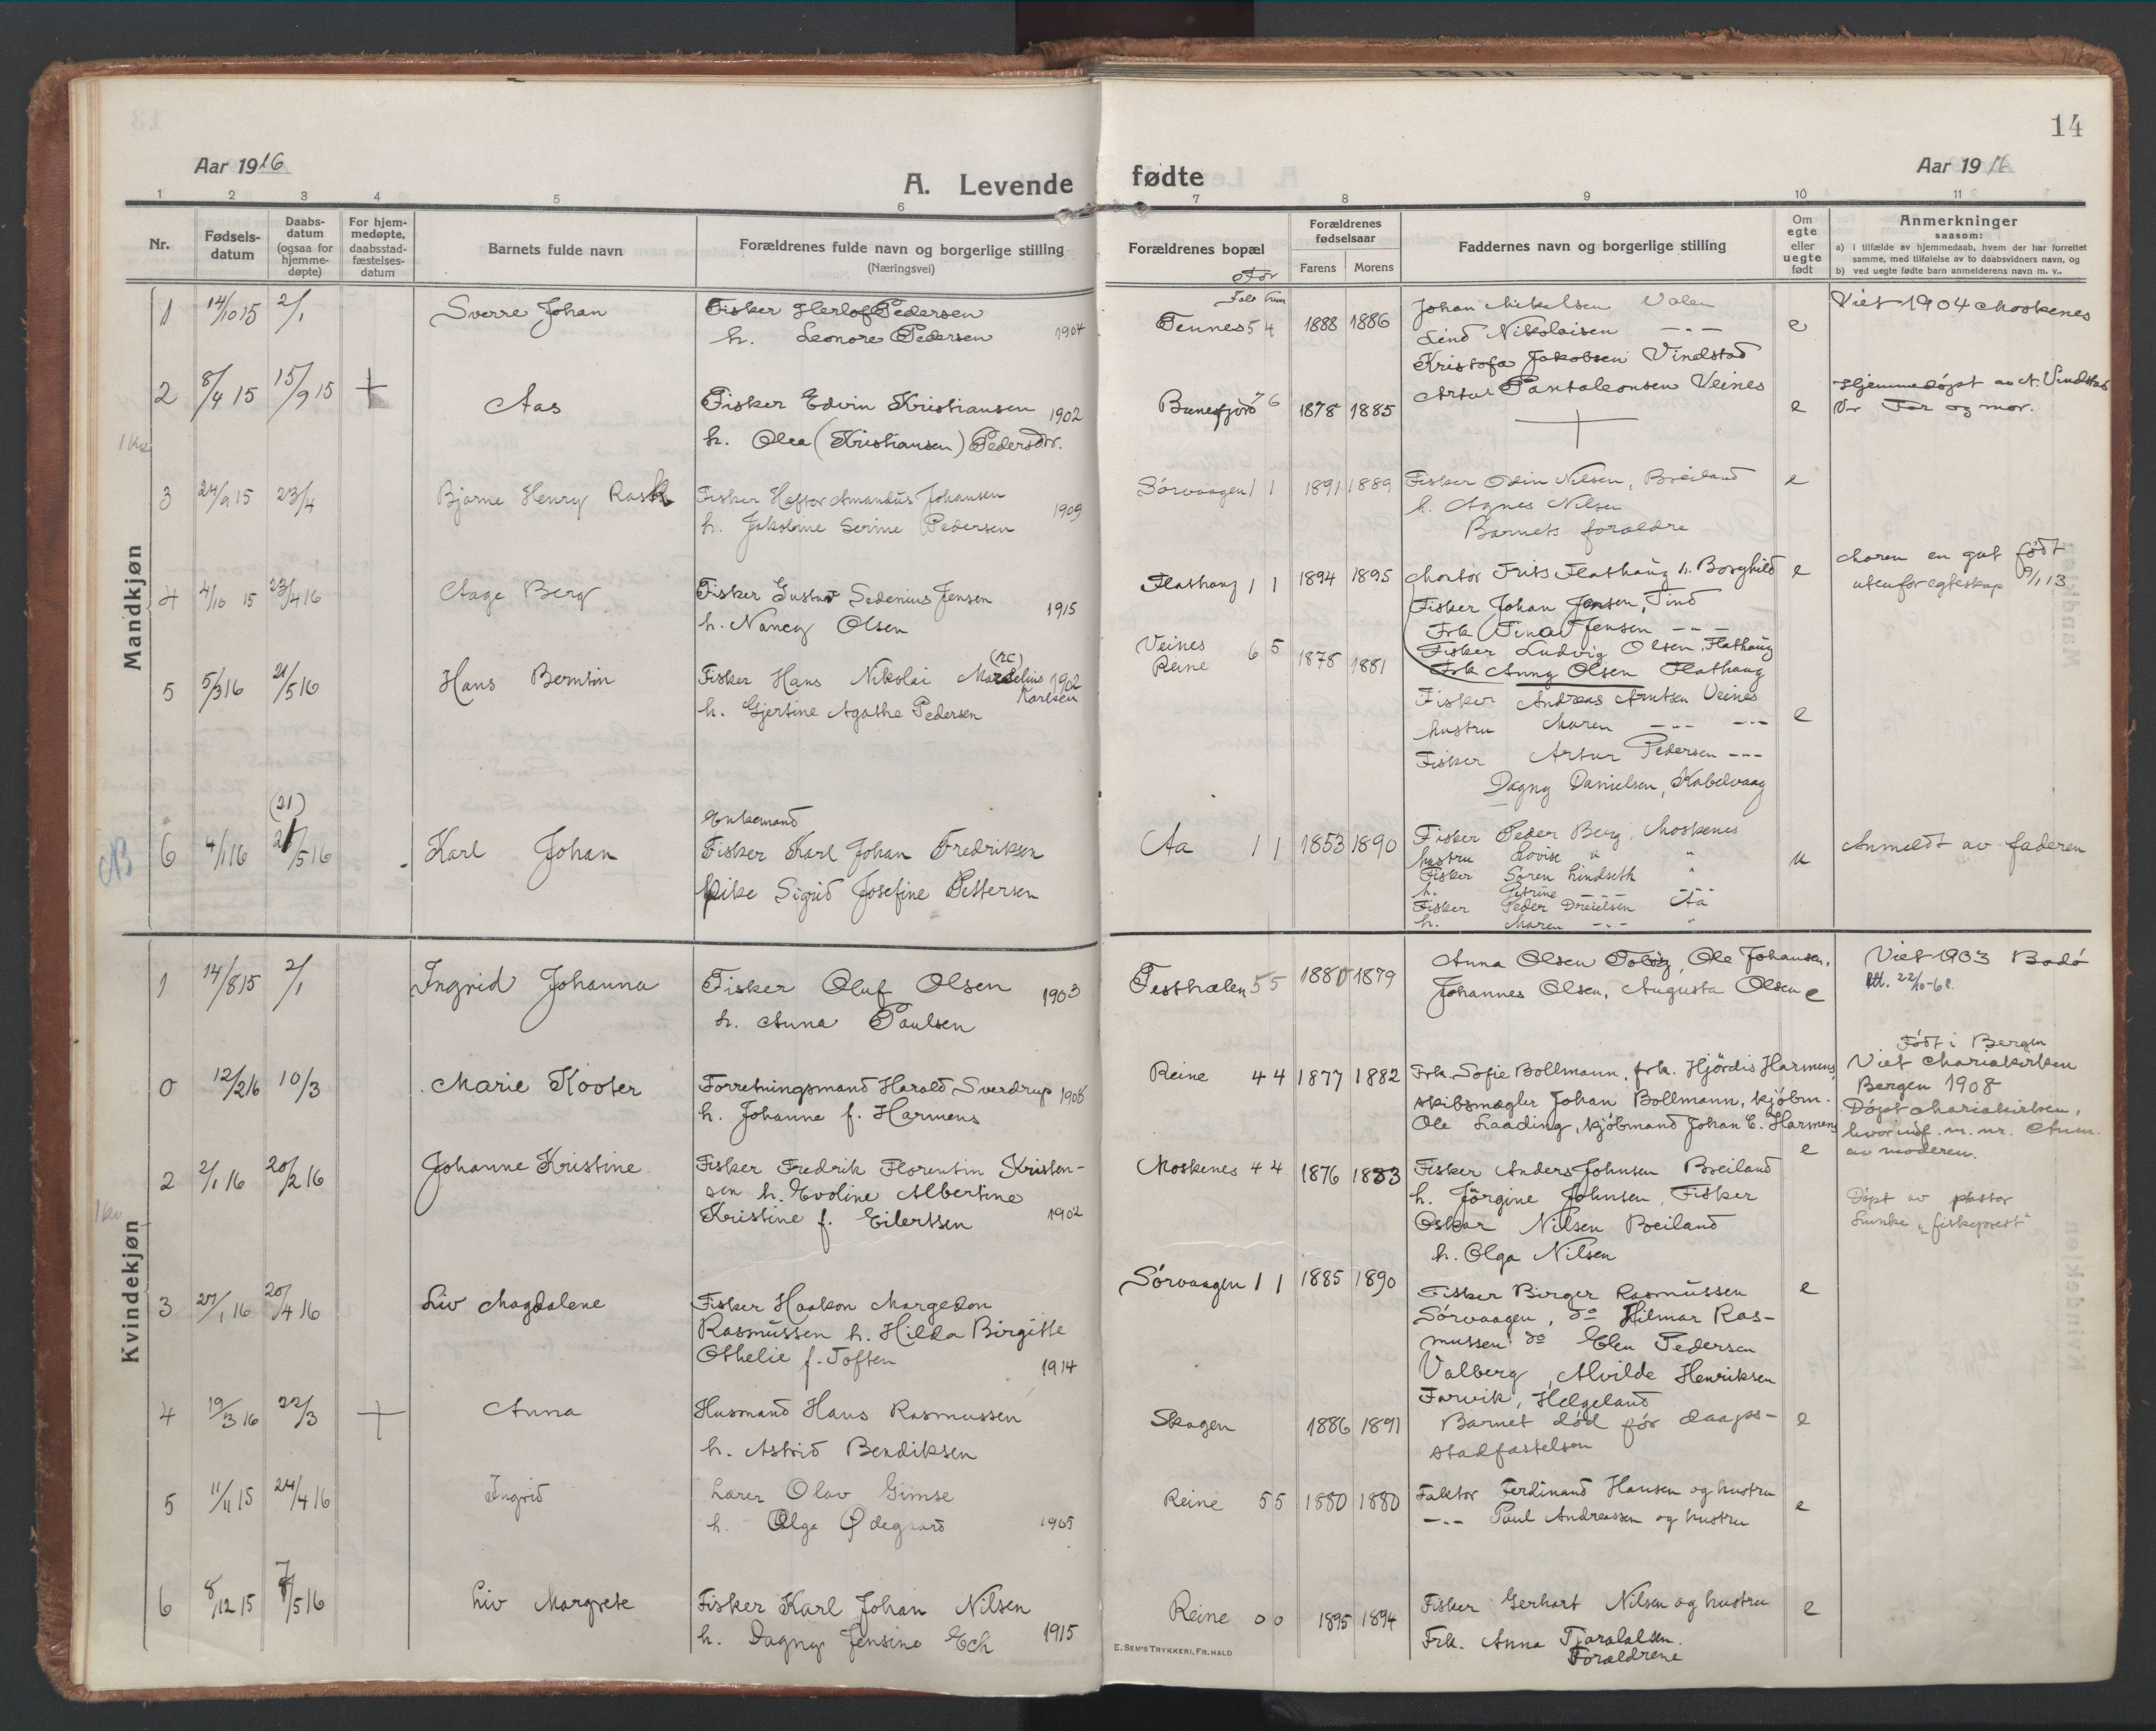 14
Aar 1916
A. Levende fødte
Aar 1916
1 2 3 4 5 6 7 8 9 10 11
Nr.
Fødsels-
datum
Daabs-
datum
(ogsaa for
hjemme-
døpte)
For hjem-
medøpte,
daabsstad-
fæstelses-
datum
Barnets fulde navn
Forældrenes fulde navn og borgerlige stilling
(Næringsvei)
Forældrenes bopæl
Forældrenes
fødselsaar
Farens Morens
Faddernes navn og borgerlige stilling
Om
egte
eller
uegte
født
Anmerkninger
saasom:
a) i tilfælde av hjemmedaab, hvem der har forrettet
samme, med tilføielse av to daabsvidners navn, og
b) ved uegte fødte barn anmelderens navn m. v..
Mandkjøn
1 14/10 15 2/1 Sverre Johan
Fisker Herlof Pedersen
h. Leonore Pedersen 1904
Tennes 5 4 1888 1886
Johan Mikkelsen Valen
Lind Nikolaisen -"-
Kristofa Jakobsen Vindstad
Artur Pantaleonsen Veines
e
Viet 1904 Moskenes
2 8/4 15 15/9 15 + Aas
Fisker Edvin Kristiansen 1902
h. Olea (Kristiansen) Pedersdtr.
Bunesfjord 7 6 1878 1885
e
Hjemmedøpt av N. Vindstad
Vr Far og mor.
3 24/9 15 23/4 Bjarne Henry Rask
Fisker Haftor Amandus Johansen 1909
h. Jakobine Serine Pedersen
Sørvaagen 1 1 1891 1889
Fisker Odin Nilsen, Breiland
h. Agnes Nilsen
Barnets forældre
e
4 4/10 15 23/4 16 Aage Berg
Fisker Gustav Sedenius Jensen 1915
h. Nancy Olsen
Flathaug 1 1 1894 1895
Frits Flathaug h. Borghild
Fisker Johan Jensen, Tind
Frk Tina Jensen -"-
Fisker Ludvig Olsen, Flathaug
Frk Anny Olsen Flathaug
e
Moren en gut født
utenfor egteskap 9/1 13
5 5/3 16 21/5 16 Hans Berntin
Fisker Hans Nikolai Marselius (rc) 1902
Karlsen
h. Gjertine Agathe Pedersen
Veines
Reine 6 5 1878 1881
Fisker Andreas Arntsen Veines
hustru Maren -"- -"-
Fisker Artur Pedersen -"-
Dagny Danielsen, Kabelvaag
e
6 4/1 16 (21) 21/5 16 Karl Johan
Enkemand
Fisker Karl Johan Fredriksen
Pike Sigrid Josefine Pettersen
Aa 1 1 1853 1890
Fisker Peder Berg, Moskenes
hustru Lovise " "
Fisker Søren Lindseth "
h. Petrine -"- -"-
Fisker Peder Dreielsen Aa
h. Maren -"- "
u
Anmeldt av faderen
Kvindekjøn
1 14/8 15 2/1 Ingrid Johanna
Fisker Oluf Olsen 1903
h. Anna Paulsen
Festhælen 5 5 1880 1879
Anna Olsen Ole Johansen,
Johannes Olsen, Augusta Olsen
e
Viet 1903 Bodø
22/10-68.
0 12/2 16 10/3 Marie Kooter
Forretningsmand Harald Sverdrup 1908
h. Johanne f. Harmens
Reine 4 4 1877 1882
Frk. Sofie Bollmann, frk. Hjørdis Harmens,
skibsmægler Johan Bollmann, kjøbm.
Ole Laading, kjøbmand Johan E. Harmens
e
Født i Bergen
Viet Mariakirken
Bergen 1908
Døpt Mariakirken,
hvor indf. m. nr. Anm.
av moderen.
2 2/1 16 20/2 16 Johanne Kristine
Fisker Fredrik Florentin Kristen-
sen h. Evoline Albertine
Kristine f. Eilertsen 1902
Moskenes 4 4 1876 1883
Fisker Anders Johnsen Breiland
h. Jörgine Johnsen, Fisker
Oskar Nilsen Breiland
h. Olga Nilsen
Døpt av pastor
Lunke "fiskeprest"
3 27/1 16 20/4 16 Liv Magdalene
Fisker Haakon Margedon
Rasmussen h. Hilda Birgitte
Othelie f. Toften 1914
Sørvaagen 1 1 1885 1890
Fisker Birger Rasmussen
Sørvaagen, do Hilmar Ras-
mussen do Elen Pedersen
Valberg, Alvilde Henriksen
Farvik, Helgeland
e
4 19/3 16 22/3 + Anna
Husmand Hans Rasmussen
h. Astrid Bendiksen
Skogen 1886 1891
Barnet død før daaps-
stadfæstelsen
e
5 11/11 15 24/4 16 Ingrid
Lærer Olav Gimse
h. Olga Ødegaard 1905
Reine 5 5 1880 1880
Faktor Ferdinand Hansen og hustru
-"- Paul Andreassen og hustru
e
6 8/12 15 7/5 16 Liv Margrete
Fisker Karl Johan Nilsen
h. Dagny Jensine Eck 1915
Reine 0 0 1895 1894
Fisker Gerhart Nilsen og hustru
Frk. Anna
Forældrene
e
E. SEM'S TRYKKERI, FR. HALD